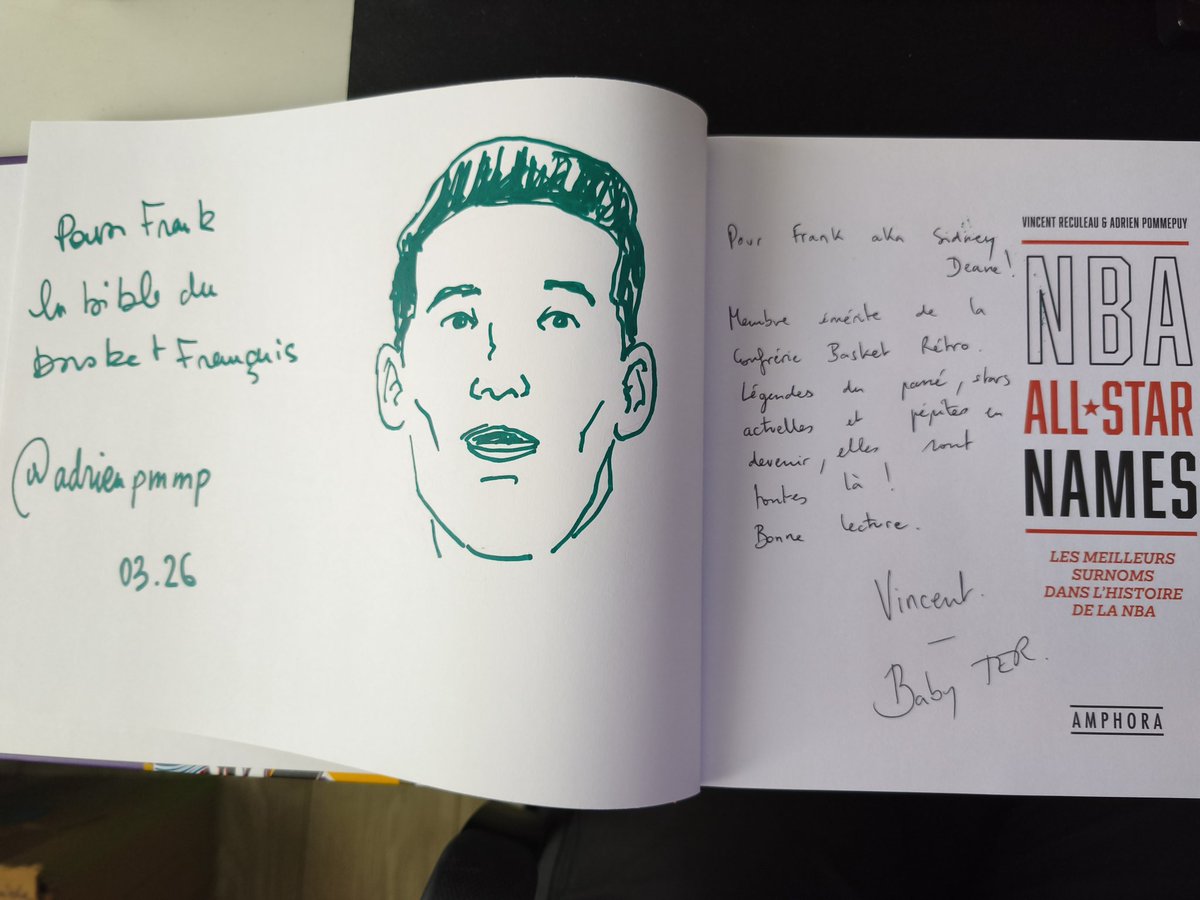 Pour Frank
la bible du
basket Français
@adrienpmmp
03.26
Pour Frank aka Sidney
Deane!
Membre émérite de la
Confrérie Basket Rétro.
Légendes du passé, stars
actuelles et pépites en
devenir, elles sont
toutes là !
Bonne lecture.
Vincent.
Baby TER.
VINCENT RECULEAU & ADRIEN POMMEPUY
NBA
ALL★STAR
NAMES
LES MEILLEURS
SURNOMS
DANS L'HISTOIRE
DE LA NBA
AMPHORA